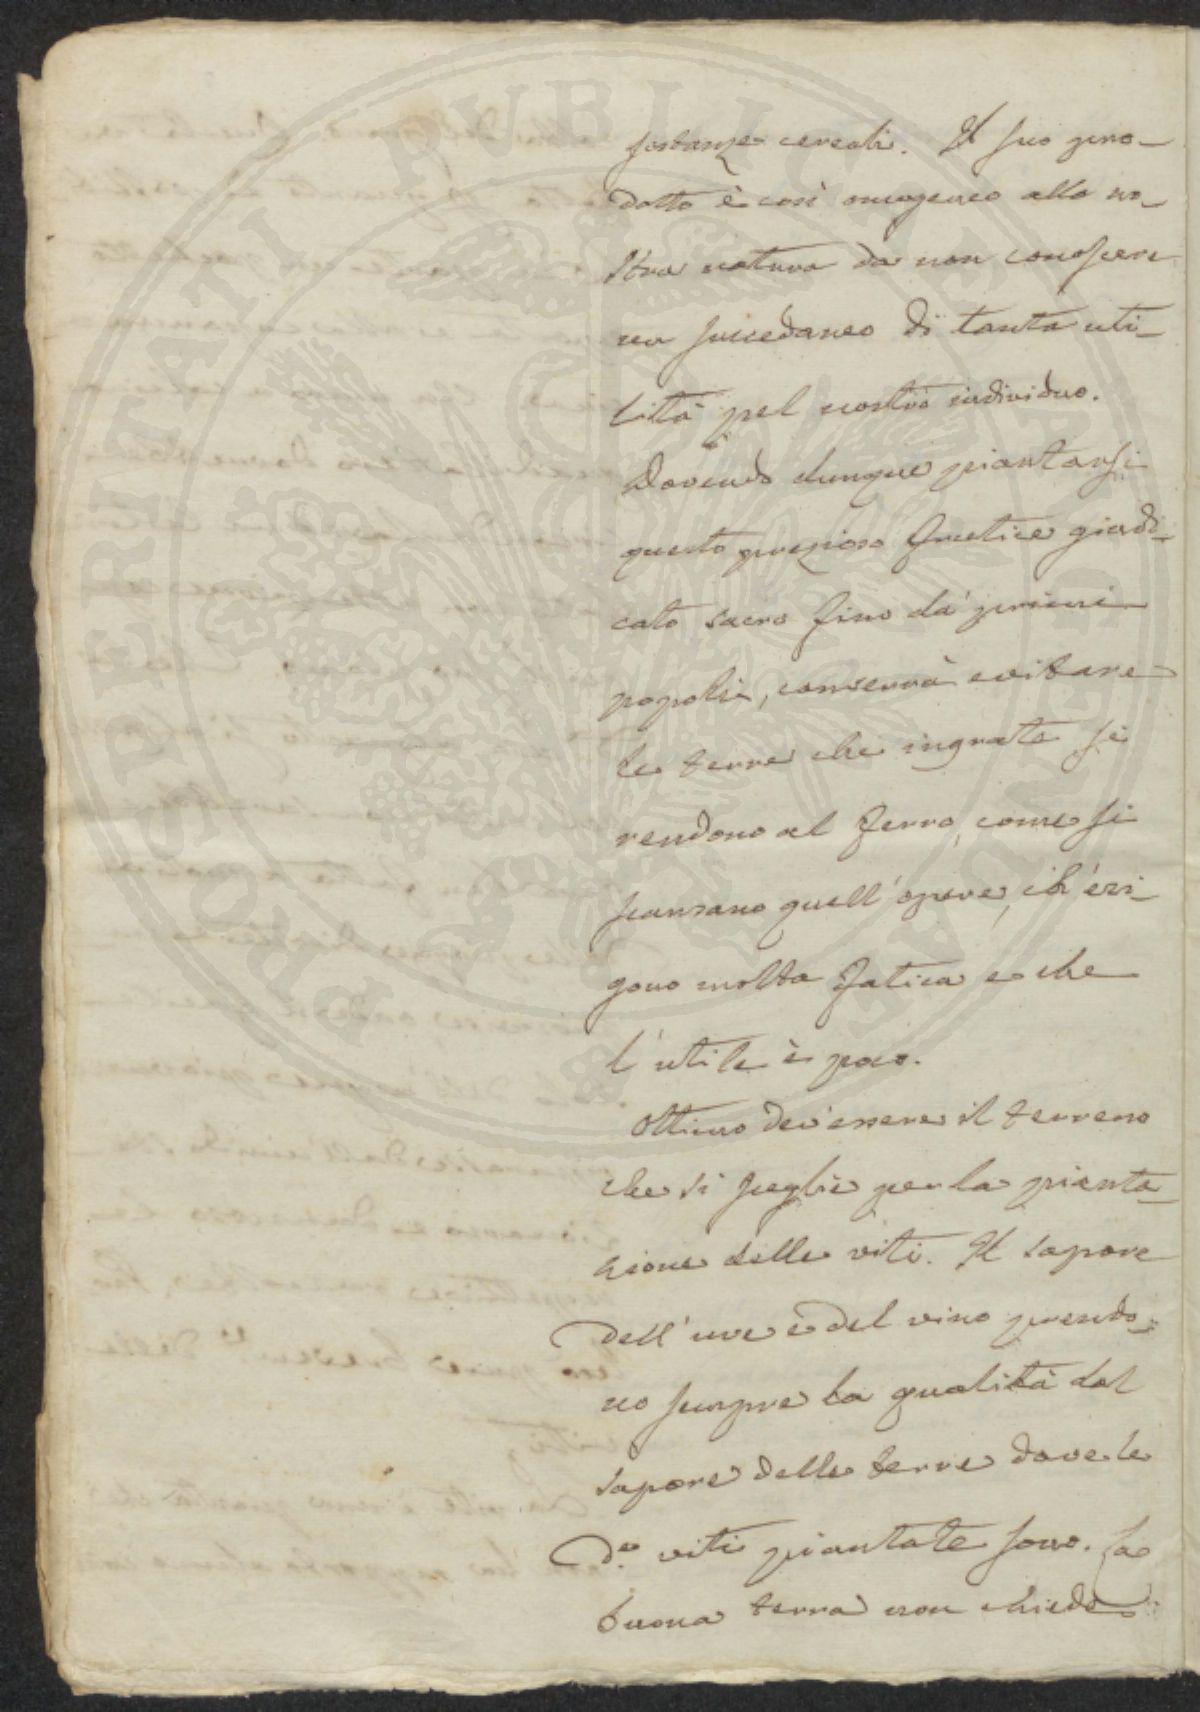 sostanze cereali. Il suo pro-
dotto è così omogeneo alla no-
stra natura da non conoscere
un succedaneo di tanta uti-
lità pel nostro individuo.
Dovendo dunque piantarsi
questo prezioso frutice giudi-
cato sacro fino da' primi
popoli, converrà evitare
le terre che ingrate si
rendono al ferro, come si
scansano quell'opere, ch'esi-
gono molta fatica e che
l'utile è poco.
Ottimo dev'essere il terreno
che si sceglie per la pianta-
zione delle viti. Il sapore
dell'uve e del vino prendo-
no sempre la qualità del
sapore delle terre dove le
d.e viti piantate sono. La
buona terra non chiede
PROSPERITATI PUBLICAE AUGENDAE